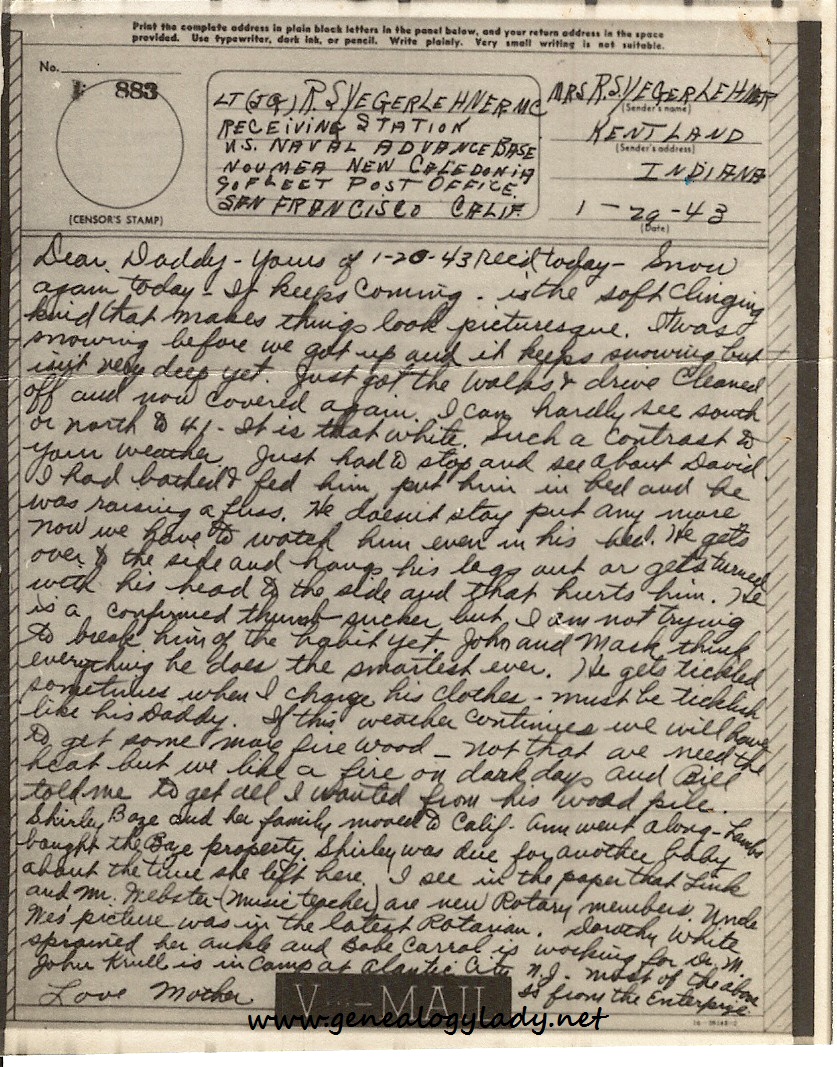 Print the complete address in plain block letters in the panel below, and your return address in the space
provided. Use typewriter, dark ink, or pencil. Write plainly. Very small writing is not suitable.
No.
883
(CENSOR'S STAMP)
LT (JG) R. S YEGERLEHNER MC
RECEIVING STATION
U.S. NAVAL ADVANCE BASE
NOUMEA NEW CALEDONIA
FLEET POST OFFICE
SAN FRANCISCO CALIF.
MRS R.S. YEGERLEHNER
(Sender's name)
KENTLAND
(Sender's address)
INDIANA
1-29-43
(Date)
Dear Daddy - Yours of 1-20-43 Rec'd today - Snow
again today - It keeps coming - is the soft clinging
kind that makes things look picturesque. It was
snowing before we got up and it keeps snowing but
isn't very deep yet. Just got the walks & drive cleaned
off and now covered again. I can hardly see south
or north to 41 - It is that white. Such a contrast to
your weather. Just had to stop and see about David.
I had bathed & fed him put him in bed and he
was raising a fuss. He doesn't stay put any more
now we have to watch him even in his bed. He gets
over to the side and hangs his legs out or gets turned
with his head to the side and that hurts him. He
is a confirmed thumb-sucker but I am not trying
to break him of the habit yet. John and Mark think
everything he does the smartest ever. He gets tickled
sometimes when I change his clothes - must be ticklish
like his Daddy. If this weather continues we will have
to get some more fire wood - not that we need the
heat but we like a fire on dark days and Bill
told me to get all I wanted from his wood pile.
Shirley Baze and her family moved to Calif. Ann went along - Lambs
bought the Baze property. Shirley was due for another baby
about the time she left here. I see in the paper that Link
and Mr. Webster (Music teacher) are new Rotary members. Uncle
Wes' picture was in the latest Rotarian. Dorothy White
sprained her ankle and Babe Carrol is working for Dr. M.
John Krull is in Camp at Alantic City N.J. most of the above
Love Mother
is from the Enterprise
V···—MAIL
www.genealogylady.net